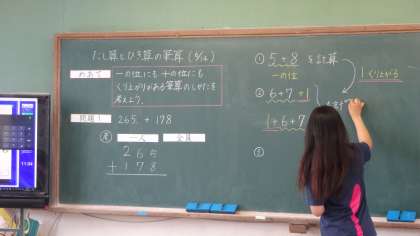 たし算とひき算の筆算(5/12)
めあて
一の位にも十の位にも
くり上がりがある筆算のしかたを
考えよう。
問題1
265+178
考
一人
全員
265
+178
① 5+8を計算
一の位
1くり上がる
② 6+7+1
1+6+7
③